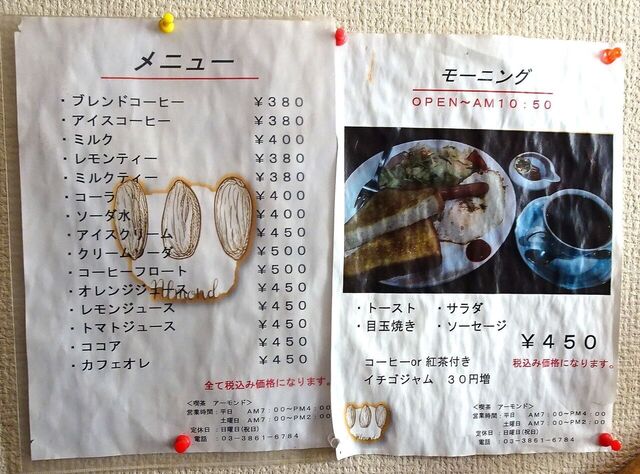 メニュー
・ブレンドコーヒー ￥３８０
・アイスコーヒー ￥３８０
・ミルク ￥４００
・レモンティー ￥３８０
・ミルクティー ￥３８０
・コーラ ￥４００
・ソーダ水 ￥４００
・アイスクリーム ￥４５０
・クリームソーダ ￥５００
・コーヒーフロート ￥５００
・オレンジジュース ￥４５０
・レモンジュース ￥４５０
・トマトジュース ￥４５０
・ココア ￥４５０
・カフェオレ ￥４５０
Almond
全て税込み価格になります。
＜喫茶 アーモンド＞
営業時間：平日 ＡＭ７：００～ＰＭ４：００
土曜日 ＡＭ７：００～ＰＭ２：００
定休日：日曜日(祝日)
電話 ：０３-３８６１-６７８４
モーニング
ＯＰＥＮ～ＡＭ１０：５０
・トースト ・サラダ
・目玉焼き ・ソーセージ
￥４５０
税込み価格になります。
コーヒーor 紅茶付き
イチゴジャム ３０円増
＜喫茶 アーモンド＞
営業時間：平日 ＡＭ７：００～ＰＭ４：００
土曜日 ＡＭ７：００～ＰＭ２：００
定休日：日曜日(祝日)
電話 ：０３-３８６１-６７８４